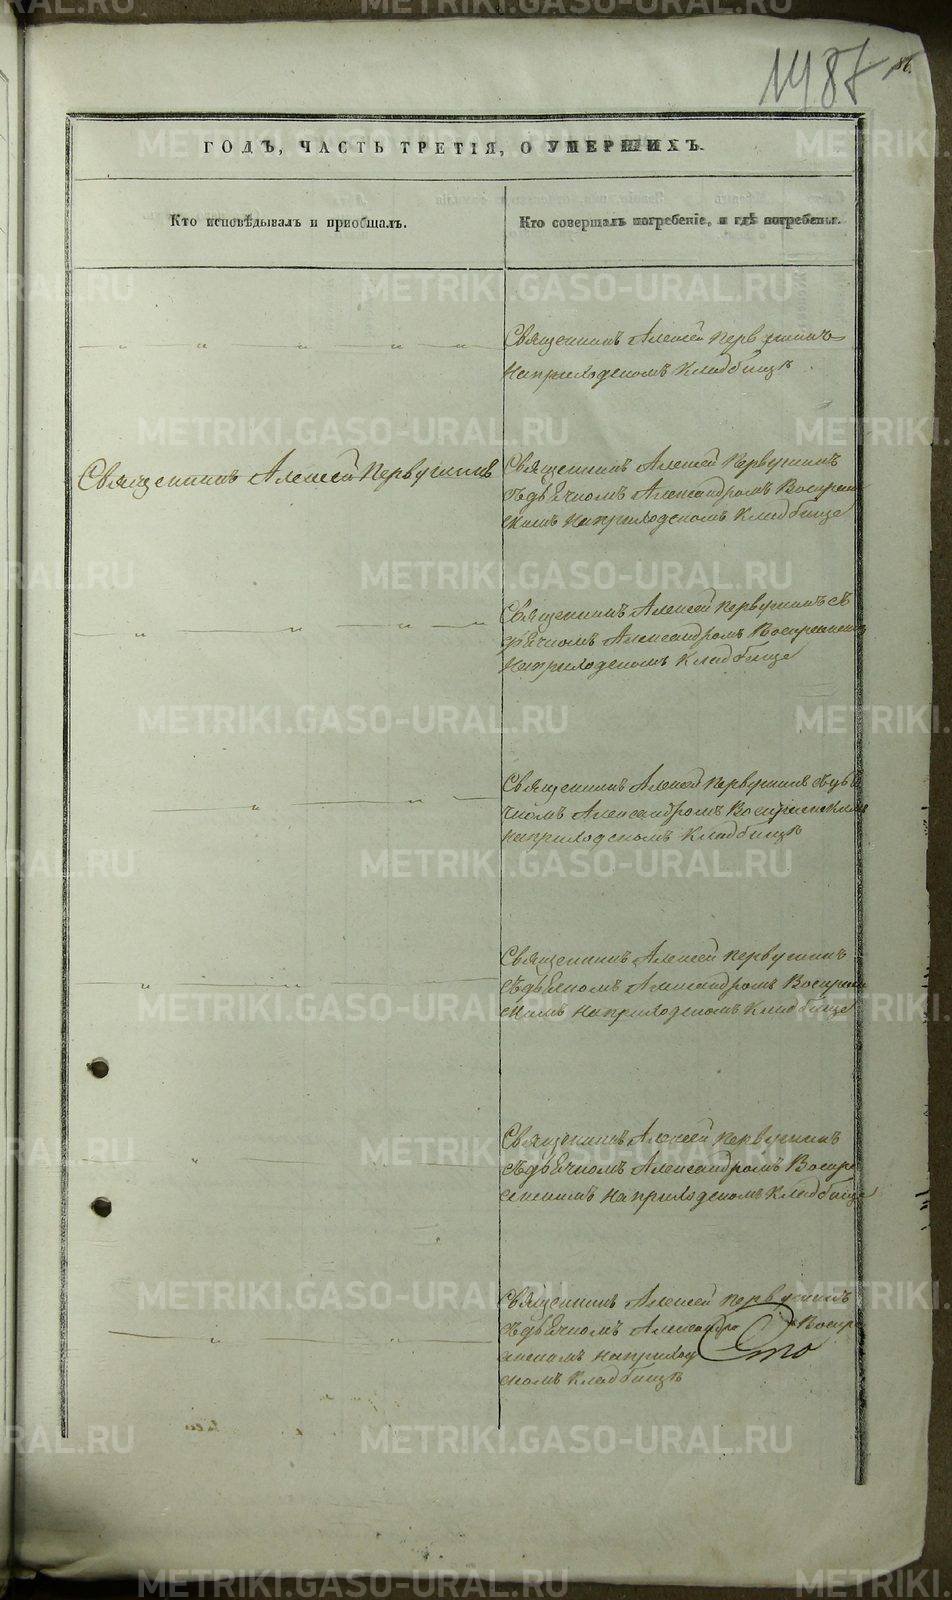 1487
86.
ГОДЪ, ЧАСТЬ ТРЕТІЯ, О УМЕРШИХЪ.
Кто исповѣдывалъ и пріобщалъ.
Кто совершалъ погребеніе, и гдѣ погребены.
Священникъ Алексѣй Первушинъ
на приходскомъ кладбищѣ.
Священникъ Алексѣй Первушинъ
Священникъ Алексѣй Первушинъ
съ дьячкомъ Александромъ Воскресен
скимъ на приходскомъ кладбище
Священникъ Алексѣй Первушинъ съ
дьячкомъ Александромъ Воскресенск
на приходскомъ кладбище
Священникъ Алексѣй Первушинъ съ дья
чкомъ Александромъ Воскресенским
на приходскомъ кладбищѣ
Священникъ Алексѣй Первушинъ
съ дьячкомъ Александромъ Воскресен
скимъ на приходскомъ кладбище
Священникъ Алексѣй Первушинъ
съ дьячкомъ Александромъ Воскре
сенскимъ на приходскомъ кладбище
Священникъ Алексѣй Первушинъ
съ дьячкомъ Александро Воскре
сенскомъ на приход
скомъ кладбищѣ
Сто
METRIKI.GASO-URAL.RU